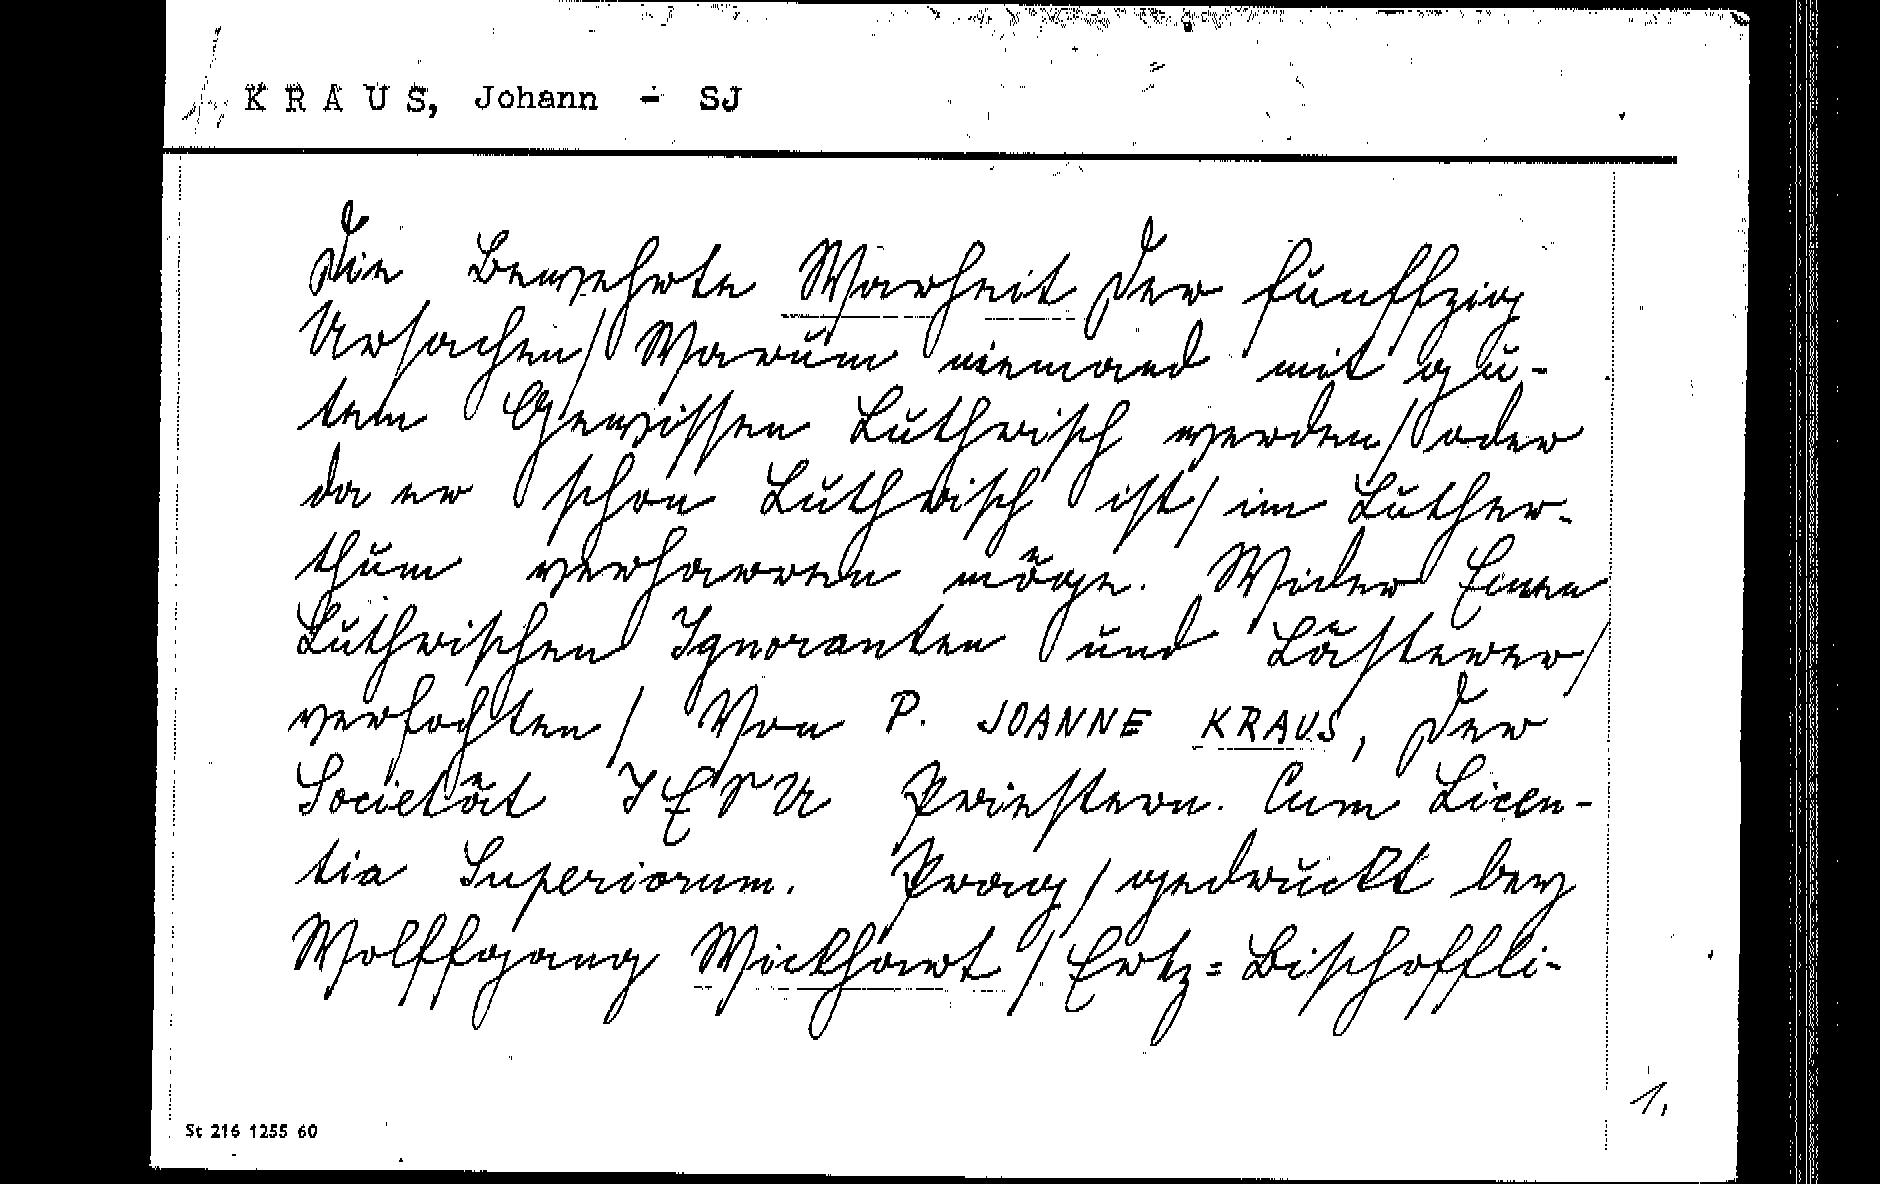 KRAUS, Johann - SJ
Die Bewehrte Warheit Der fünffzig
Ursachen/ Warum niemand mit gu-
tem Gewissen Luthrisch werden/ oder
da er schon Luthrisch ist/ im Luther-
thum verharren möge. Wider Einen
Luthrischen Ignoranten und Lästerer/
verfochten/ Von P. JOANNE KRAUS, Der
Societät JESU Priestern. Cum Licen-
tia Superiorum. Prag/ gedruckt bey
Wolffgang Wickhart/ Ertz=Bischoffli-
1.
St 216 1255 60